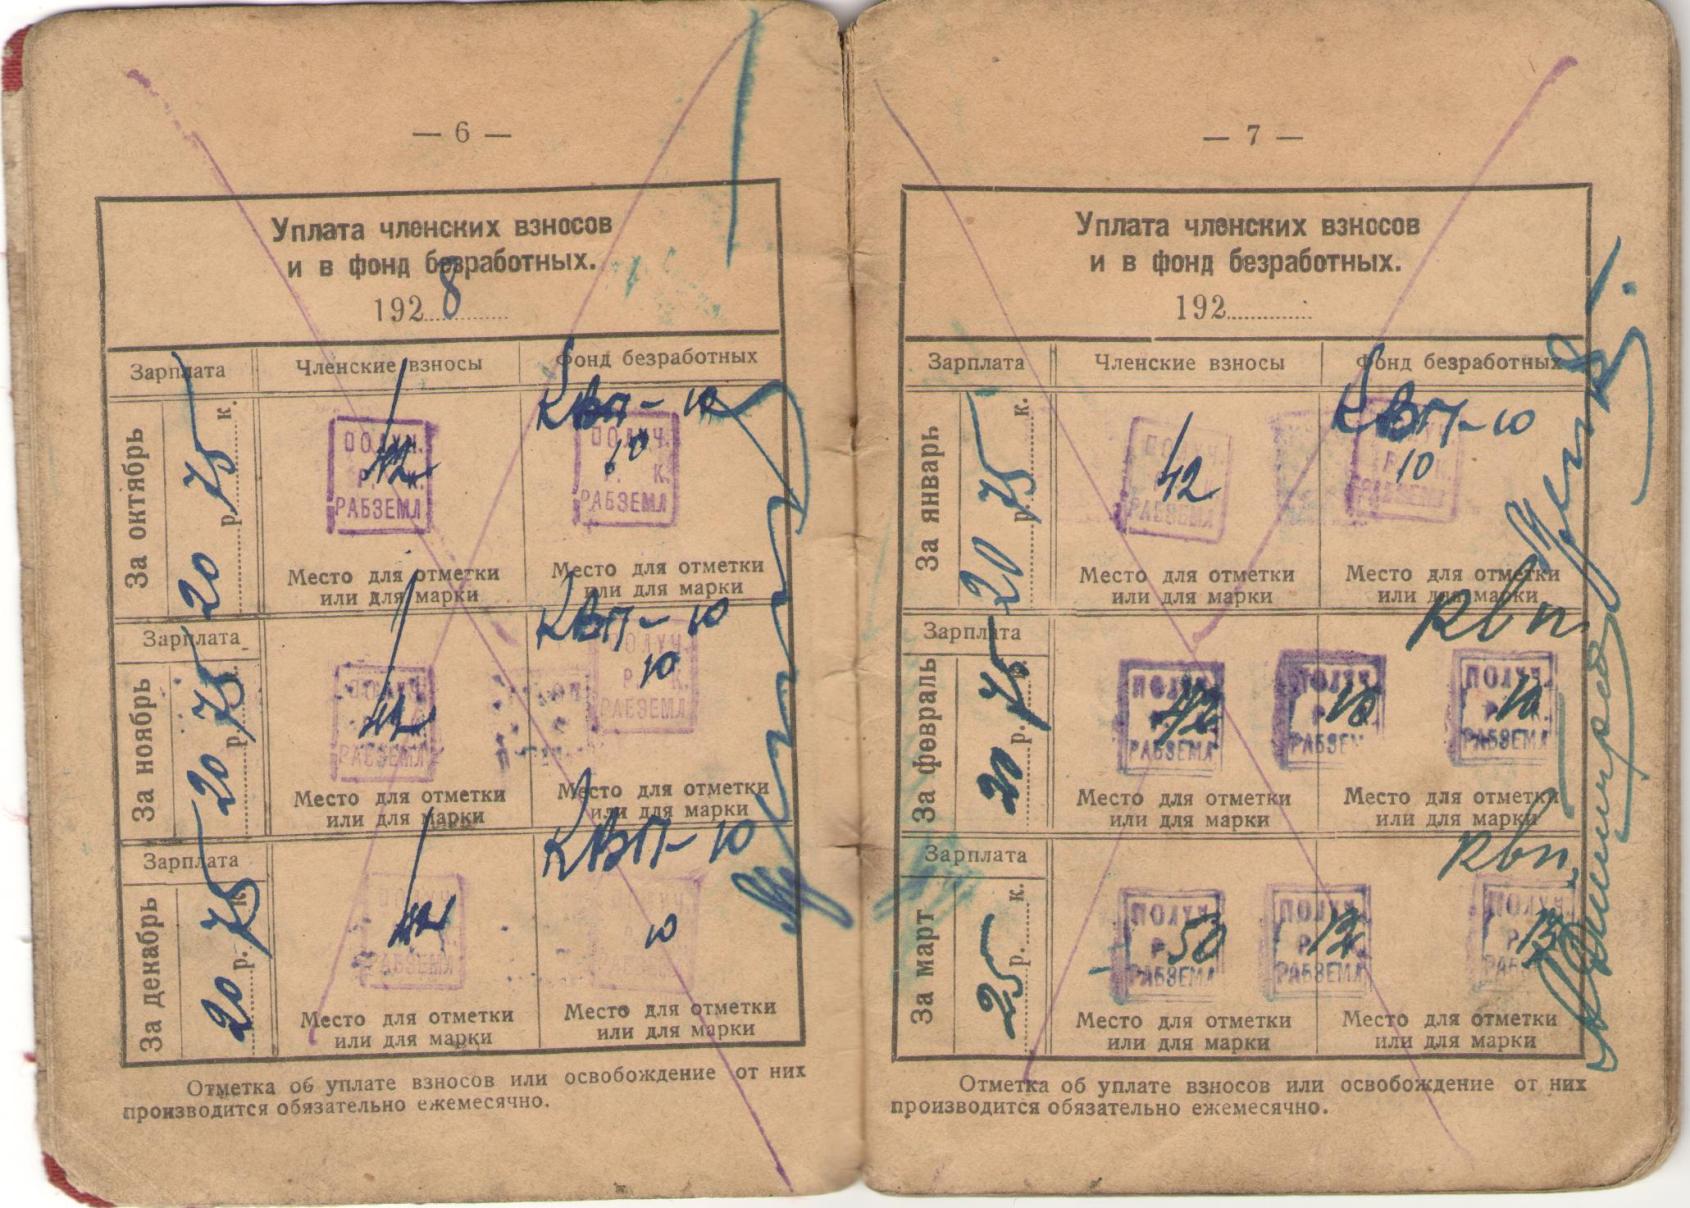 — 6 —
Уплата членских взносов
и в фонд безработных.
1928
Зарплата Членские взносы Фонд безработных
За октябрь 20 р. 75 к.
КВП-10
ПОЛУЧ. 42
Р. К.
РАБЗЕМЛ
ПОЛУЧ. 10
Р. К.
РАБЗЕМЛ
Место для отметки
или для марки
Место для отметки
или для марки
Зарплата
За ноябрь 20 р. 75 к.
КВП-10
ПОЛУЧ. 42
РАБЗЕМЛ
ПОЛУЧ. 10
Р. К.
РАБЗЕМЛ
Место для отметки
или для марки
Место для отметки
или для марки
Зарплата
За декабрь 20 р. 75 к.
КВП-10
ПОЛУЧ. 42
РАБЗЕМЛ
10
Место для отметки
или для марки
Место для отметки
или для марки
Отметка об уплате взносов или освобождение от них
производится обязательно ежемесячно.
— 7 —
Уплата членских взносов
и в фонд безработных.
192
Зарплата Членские взносы Фонд безработных
За январь 20 р. 75 к.
КВП-10
ПОЛУЧ. 42
РАБЗЕМЛ
10
Р. К.
РАБЗЕМЛ
Место для отметки
или для марки
Место для отметки
или для марки
Зарплата
За февраль 20 р. 75
квп
ПОЛУЧ. 42
РАБЗЕМЛ
ПОЛУЧ. 10
РАБЗЕМЛ
ПОЛУЧ. 10
РАБЗЕМЛ
Место для отметки
или для марки
Место для отметки
или для марки
Зарплата
За март 25 р. к.
квп
ПОЛУЧ. 50
РАБЗЕМЛ
ПОЛУЧ. 12
РАБЗЕМЛ
ПОЛУЧ. 13
Место для отметки
или для марки
Место для отметки
или для марки
Отметка об уплате взносов или освобождение от них
производится обязательно ежемесячно.